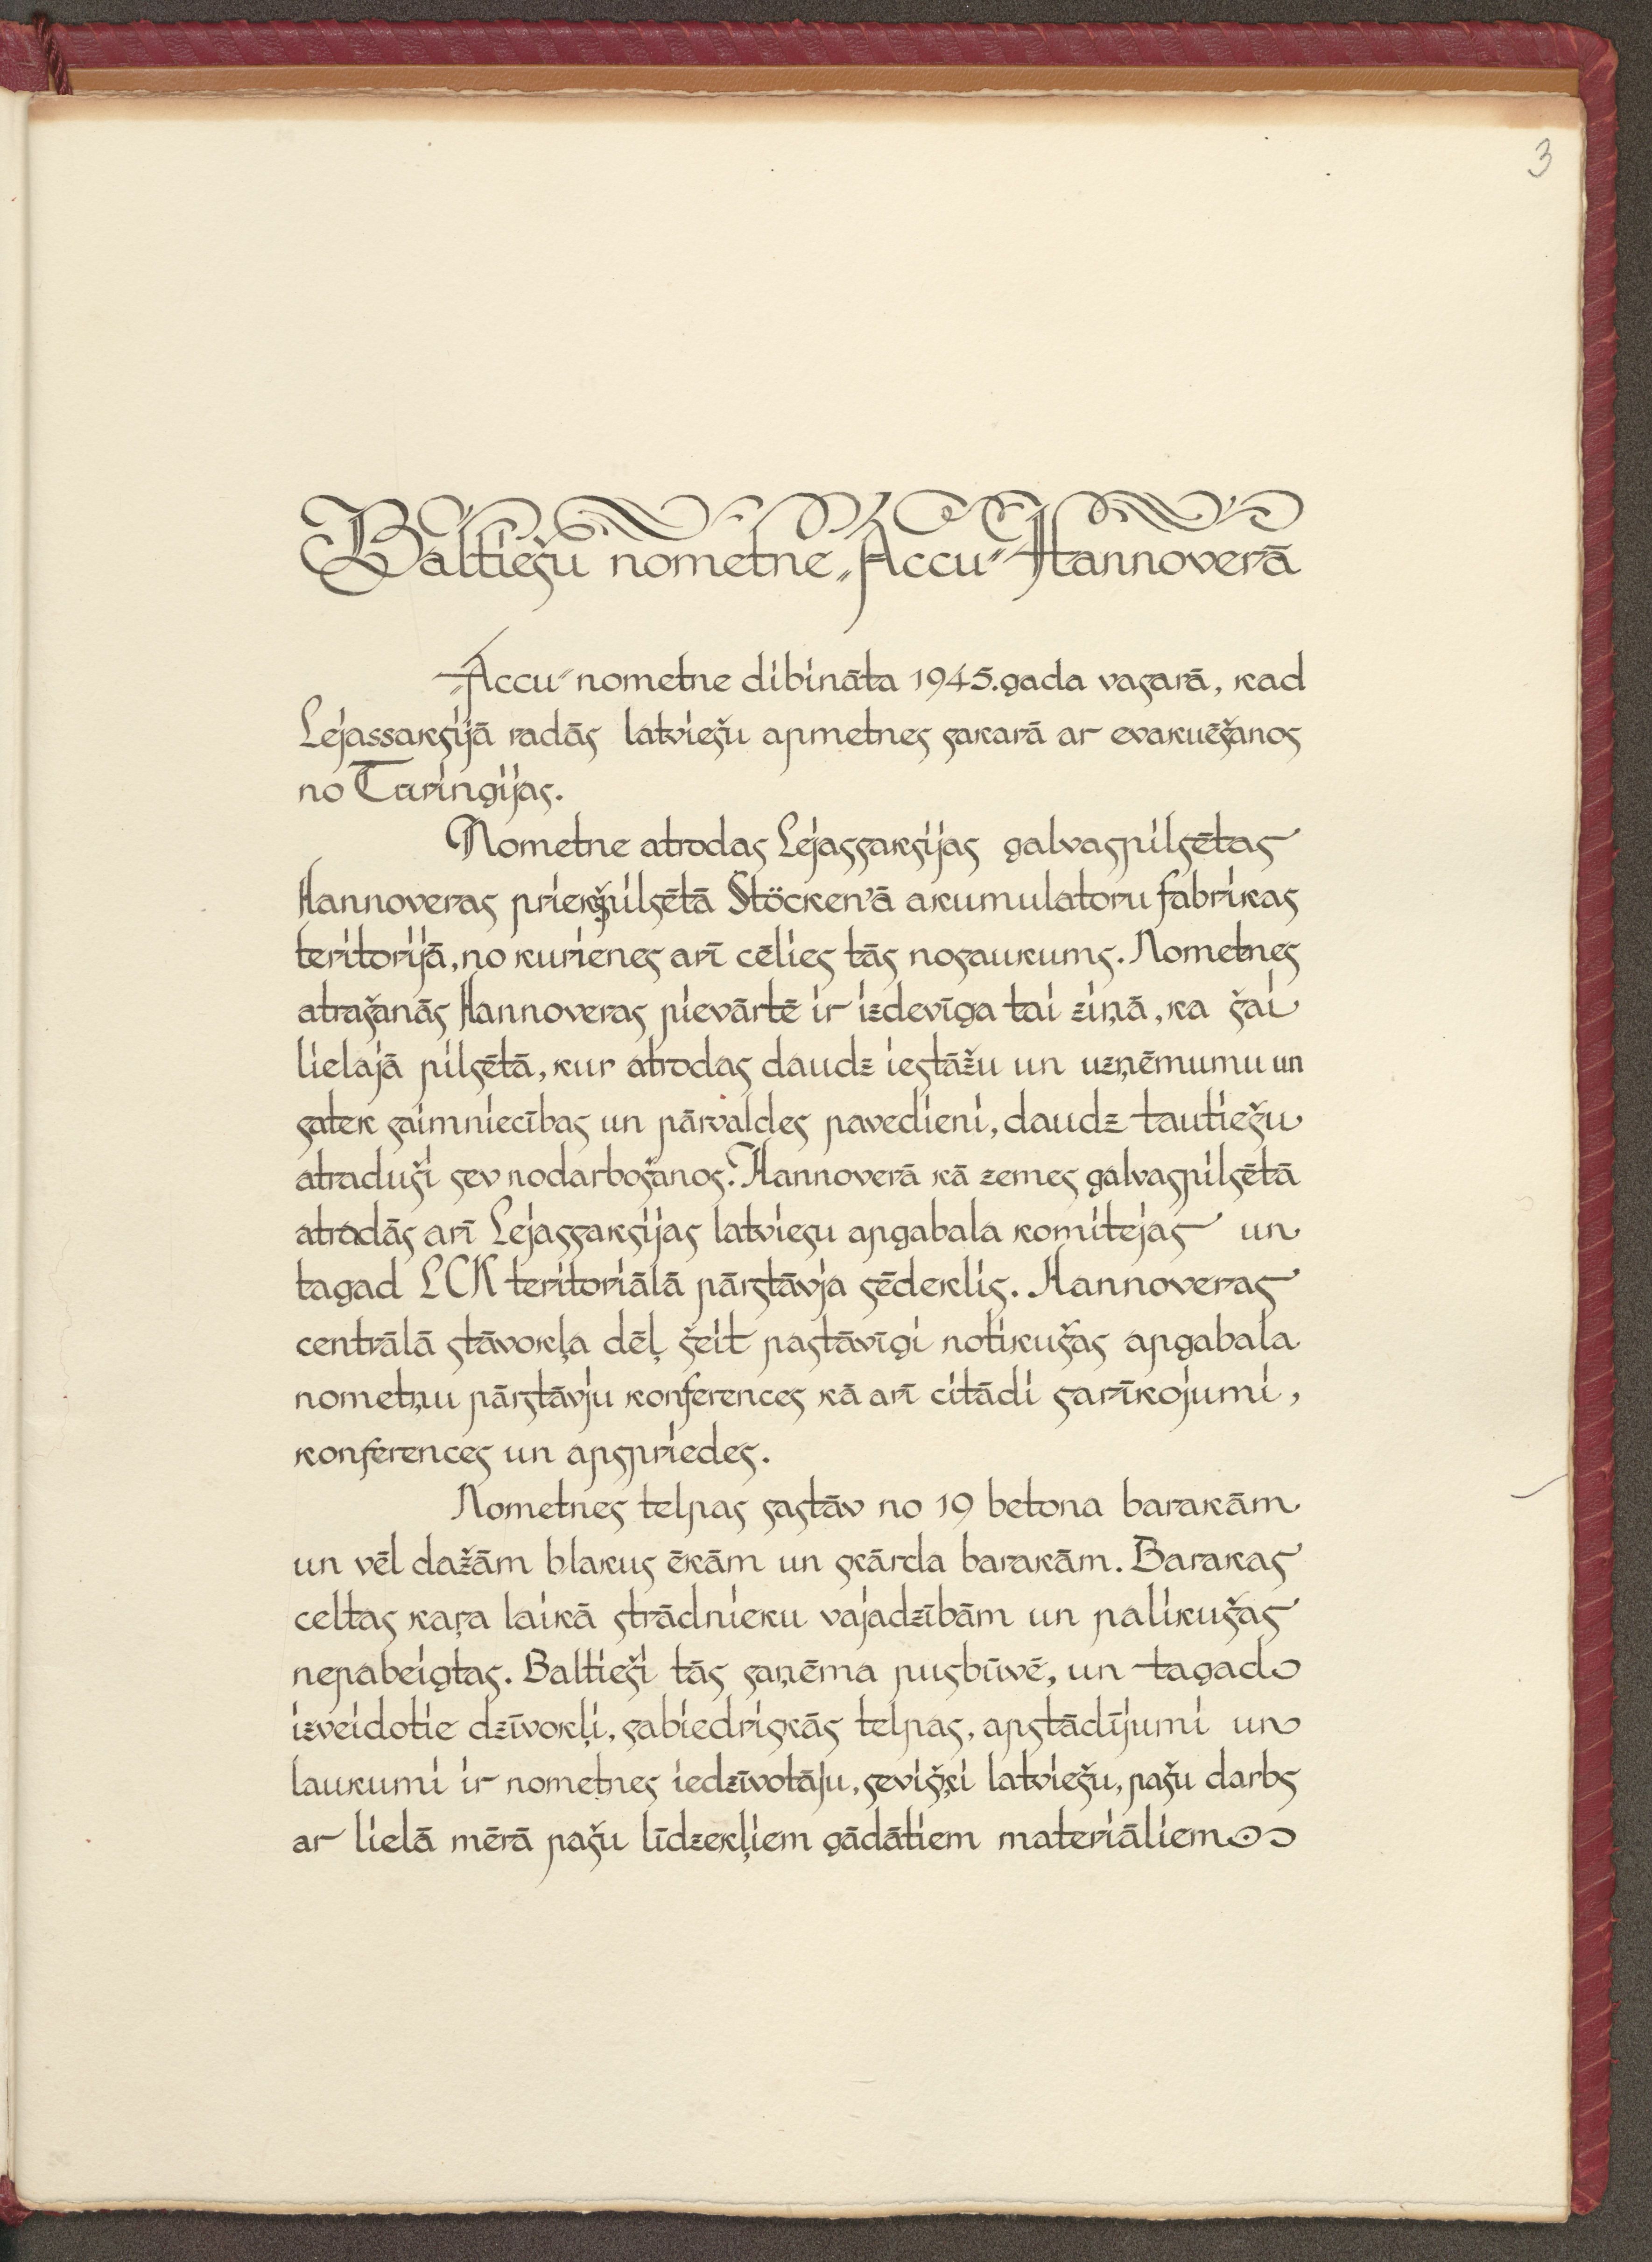 3
Baltiešu nometne „Accu" Hannoverā
„Accu" nometne dibināta 1945. gada vasarā, kad
Lejassaksijā radās latviešu apmetnes sakarā ar evakuēšanos
no Turingijas.
Nometne atrodas Lejassaksijas galvaspilsētas
Hannoveras priekšpilsētā Stöcken'ā akumulatoru fabrikas
teritorijā, no kurienes arī cēlies tās nosaukums. Nometnes
atrašanās Hannoveras pievārtē ir izdevīga tai ziņā, ka šai
lielajā pilsētā, kur atrodas daudz iestāžu un uzņēmumu un
satek saimniecības un pārvaldes pavedieni, daudz tautiešu
atraduši sev nodarbošanos. Hannoverā kā zemes galvaspilsētā
atradās arī Lejassaksijas latviesu apgabala komitejas un
tagad LCK teritoriālā pārstāvja sēdeklis. Hannoveras
centrālā stāvokļa dēļ šeit pastāvīgi notikušas apgabala
nometņu pārstāvju konferences kā arī citādi sarīkojumi,
konferences un apspriedes.
Nometnes telpas sastāv no 19 betona barakām
un vēl dažām blakus ēkām un skārda barakām. Barakas
celtas kaŗa laikā strādnieku vajadzībām un palikušas
nepabeigtas. Baltieši tās saņēma pusbūvē, un tagad
izveidotie dzīvokļi, sabiedriskās telpas, apstādījumi un
laukumi ir nometnes iedzīvotāju, sevišķi latviešu, pašu darbs
ar lielā mērā pašu līdzekļiem gādātiem materiāliem